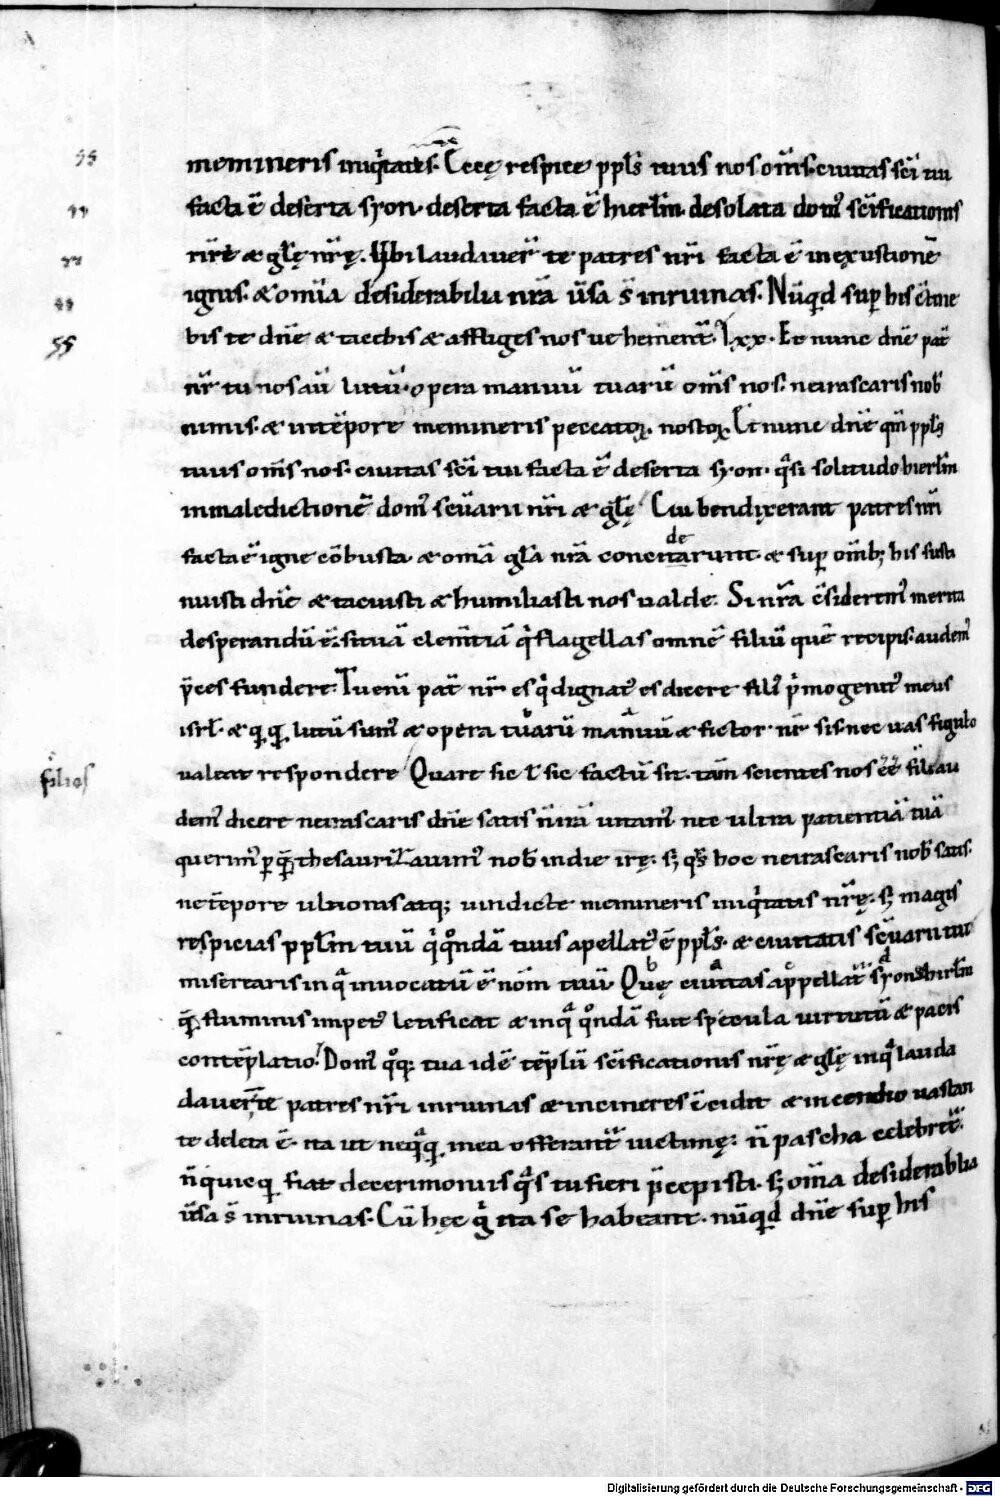 memineris iniq̇tatis. Ecce respice ppl̄s tuus nos om̄s. ciuitas sc̄i tui
facta ē deserta syon. deserta facta ē hierl̄m. desolata dom⁹ sc̄ificationis
nr̄e & gl̄ę nr̄ę. Vbi laudauer̄ te patres nr̄i facta ē in exustionē
ignis. & om̄ia desiderabilia nr̄a ūsa s̄ in ruinas. Nūqd sup his c̄tine
bis te dn̄e & tacebis & affliges nos uehement̄. lxx. Et nunc dn̄e pat̄
nr̄ tu nos aū lutū. opera manuū tuarū om̄s nos. ne irascaris nob̄
nimis. & ne ultra in tēpore memineris peccatoꝝ nostoꝝ Et nunc dn̄e qm̄ ppl̄s
tuus om̄s nos. ciuitas sc̄i tui facta ē deserta syon. qͣsi solitudo hierl̄m
in maledictionē dom⁹ sc̄uarii nr̄i & gl̄ę Cui bendixerant patres nr̄i
facta ē igne cōbusta. & om̄a gl̄a nr̄a concitarunt. & sup om̄ibꝫ his susti
de
nuisti dn̄e & tacuisti & humiliasti nos ualde. Si nr̄a c̄siderem⁹ merita
desperandū ē. si tuā clem̄tiā q̇ flagellas omnē filiū quē recipis. audem⁹
p̄ces fundere. Tu eni pat̄ nr̄ es q̇ dignat⁹ es dicere fili⁹ ṗmogenit⁹ meus
isrl̄. & quiqui lutū sum⁹ & opera tuarū manuū & fictor nr̄ sis. nec uas figulo
filios
ualeat respondere Quare sic l̄ sic factū sit. tam̄ scientes nos ēē filios au
dem⁹ dicere ne irascaris dn̄e satis
querim⁹ p quā thesaurizauim⁹ nob̄ in die irę. sꝫ qͣs hoc ne irascaris nob̄ satis.
ne tēpore ultionis atqꝫ uindicte memineris iniq̇tatis nr̄ę. sꝫ magis
respicias ppl̄m tuū q̇ qͦndā tuus apellat⁹ ē ppl̄s. & ciuitatis sc̄uarii tui
miserearis in qͣ inuocatū ē nom̄ tuū Quę ciuitas appellat̄ syon & hierl̄m
quā fluminis impet⁹ letificat & in qͣ qͦndā fuit specula uirtutū & pacis
contēplatio. Dom⁹ qͦqꝫ tua idē tēplū sc̄ificationis nr̄ę & gl̄ę in qͣ lauda
dauer̄ te patres nr̄i in ruinas & in cineres c̄cidit & incendio uastan
te deleta ē. ita ut neqͣqͣ in ea offerant̄ uictimę. n̄ pascha celebret̄.
n̄ quicqͣ fiat de cerimoniis qͣs tu fieri p̄cepisti. sꝫ om̄a desiderabilia
ūsa s̄ in ruinas. Cū hęc g̊ ita se habeant. nūqd dn̄e sup his
Digitalisierung gefördert durch die Deutsche Forschungsgemeinschaft - DFG